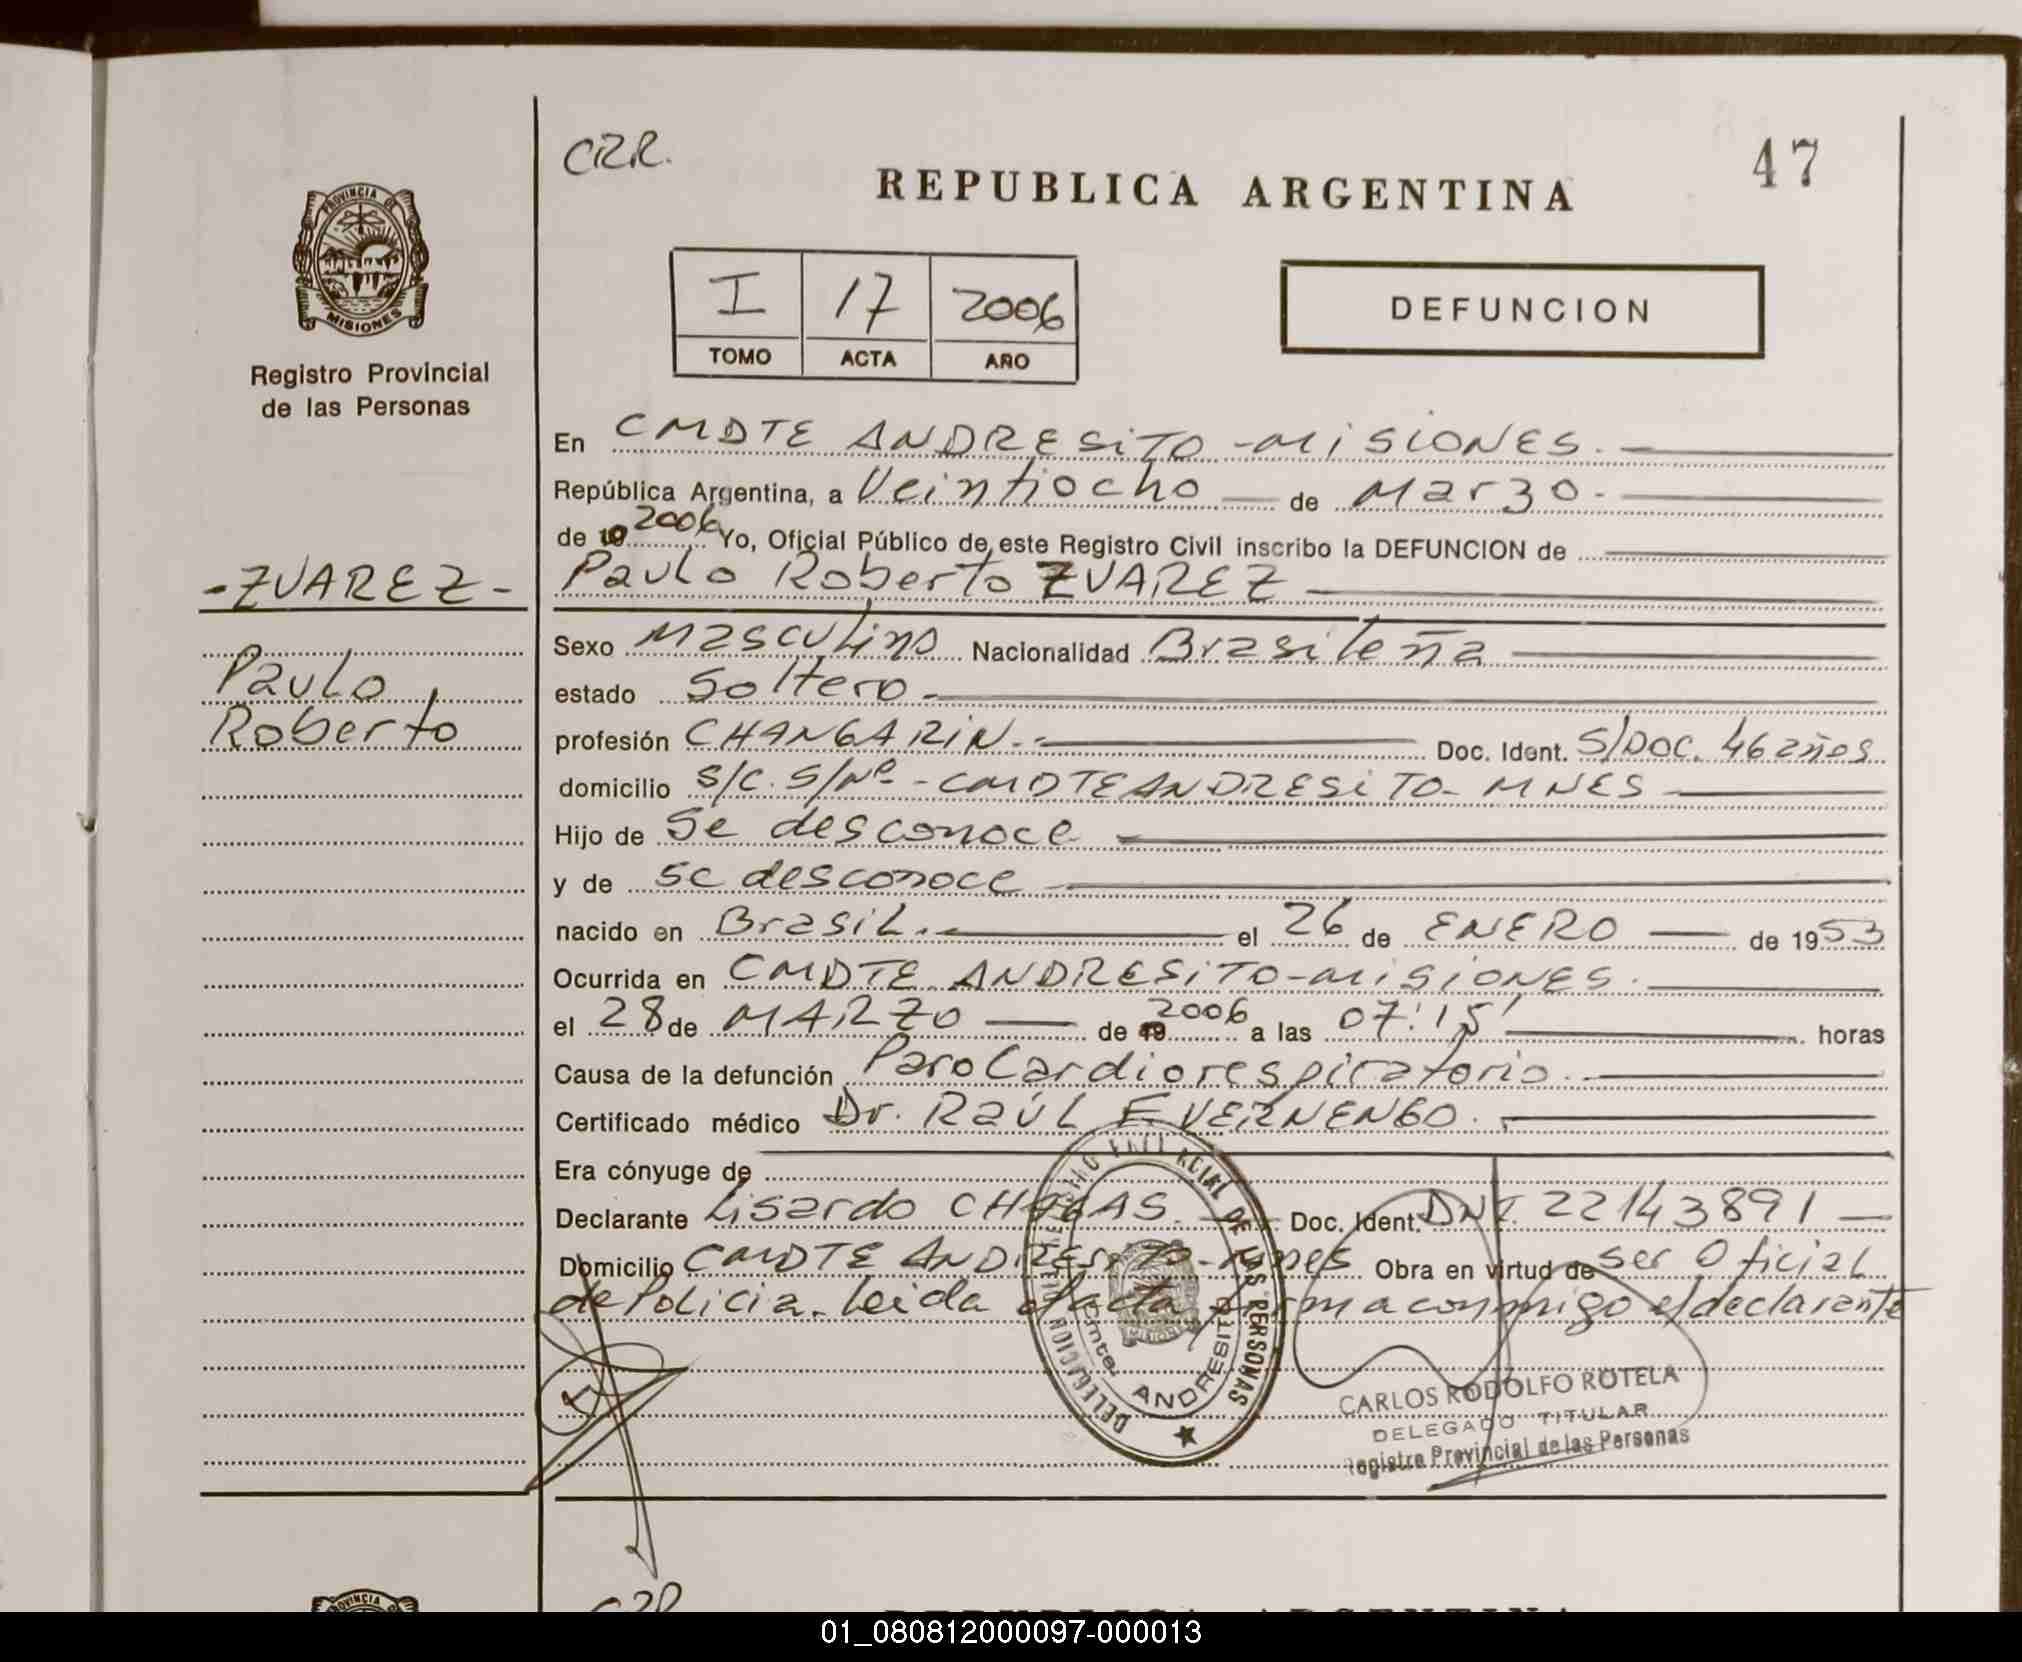 CRR.
47
REPUBLICA ARGENTINA
PROVINCIA DE
MISIONES
I 17 2006
TOMO ACTA AÑO
DEFUNCION
Registro Provincial
de las Personas
En CMDTE ANDRESITO - MISIONES.
República Argentina, a Veintiocho de Marzo.
de 19 2006 Yo, Oficial Público de este Registro Civil inscribo la DEFUNCION de
- ZUAREZ -
Paulo Roberto ZUAREZ
Sexo Masculino Nacionalidad Brasileña
Paulo
estado Soltero.
Roberto
profesión CHANGARIN. Doc. Ident. S/DOC. 46 años
domicilio S/C. S/Nº - CMDTE ANDRESITO - MNES
Hijo de Se desconoce
y de se desconoce
nacido en Brasil. el 26 de ENERO de 1953
Ocurrida en CMDTE ANDRESITO - MISIONES.
el 28 de MARZO de 19 2006 a las 07:15' horas
Causa de la defunción Paro Cardiorespiratorio.
Certificado médico Dr. RAÚL E. VERNENGO.
Era cónyuge de
Declarante Lisardo CHAGAS. Doc. Ident. DNI. 22143891
Domicilio CMDTE ANDRESITO - Mnes Obra en virtud de ser Oficial
de Policia. Leida el acta firma conmigo el declarante
DELEGACION REGISTRO PROVINCIAL DE LAS PERSONAS
Cmte. ANDRESITO
MISIONES
CARLOS RODOLFO ROTELA
DELEGADO TITULAR
Registro Provincial de las Personas
PROVINCIA
REPUBLICA ARGENTINA
01_080812000097-000013